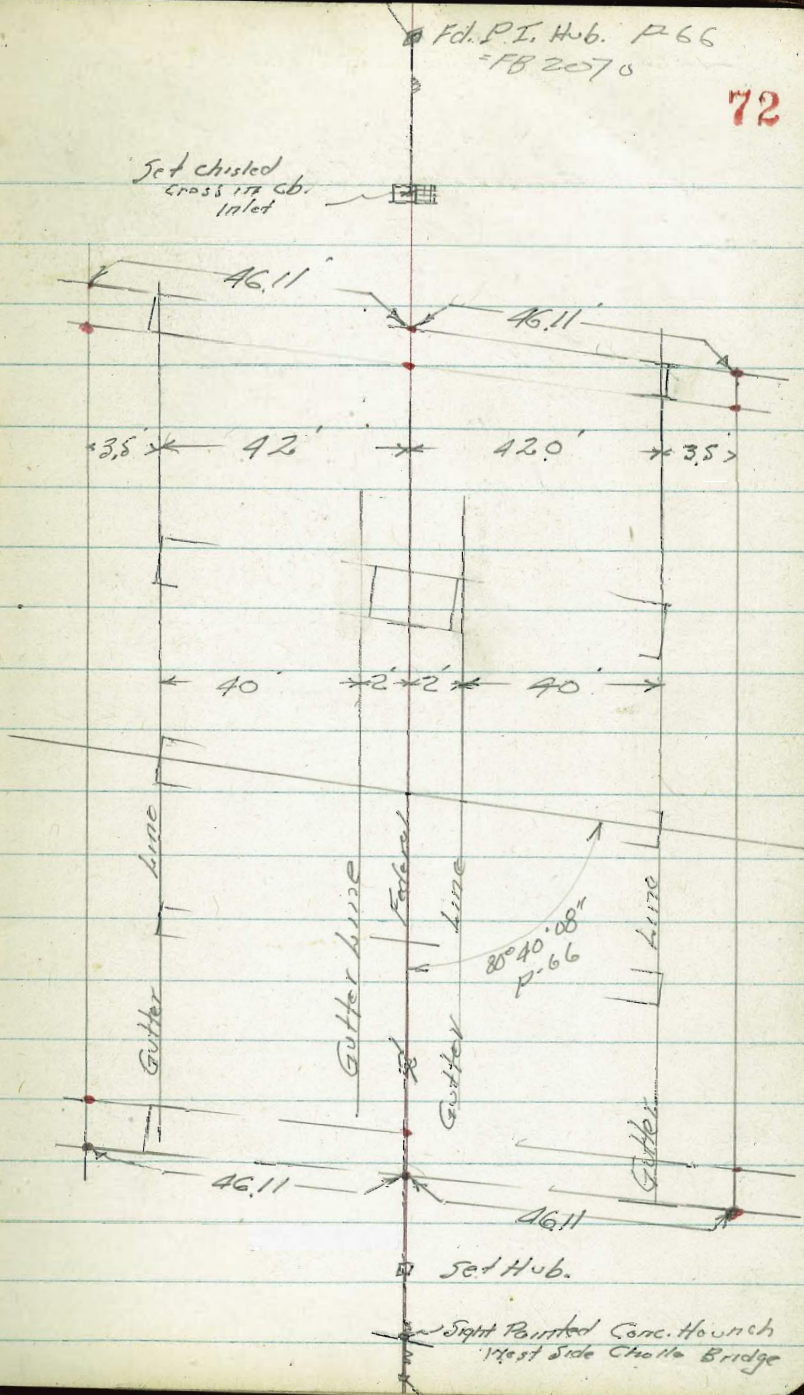 Fd. P.I. Hub. P-66
=FB 2070
72
Set chisled
cross in cb.
inlet
46.11'
46.11'
3.5'
42'
42.0'
3.5'
40'
2'
2'
40'
Gutter Line
Gutter Line
Federal
Gutter Line
Gutter Line
80°40'00"
P-66
46.11
46.11
Set Hub.
Sight Painted Conc. Haunch
West Side Cholla Bridge